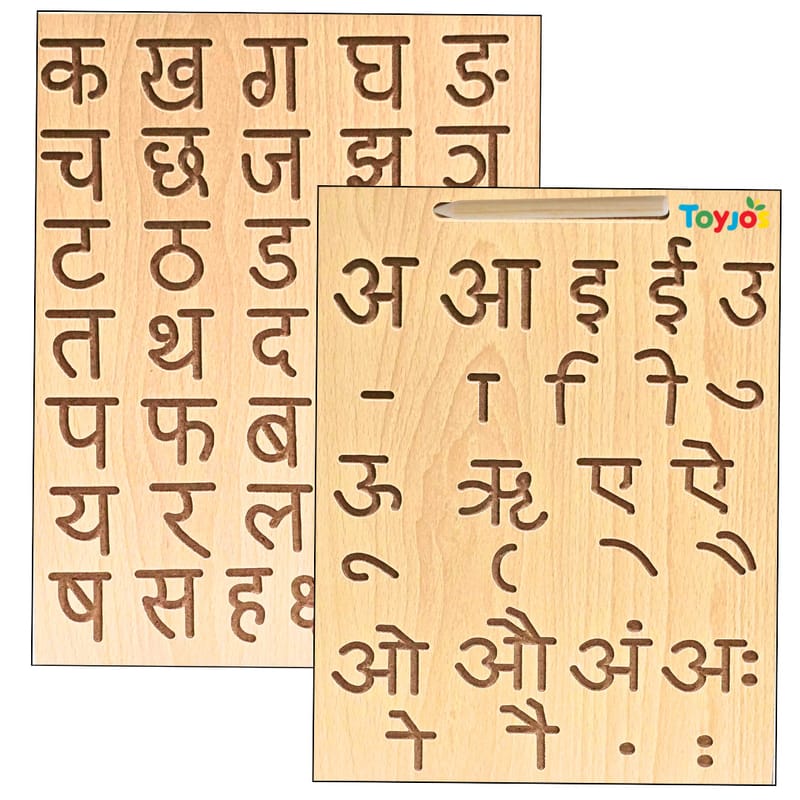 क ख ग घ ङ
च छ ज झ ञ
ट ठ ड
त थ द
प फ ब
य र ल
ष स ह
Toyjo's
अ आ इ ई उ
- ा ि ी ु
ऊ ऋ ए ऐ
ू ृ े ै
ओ औ अं अः
ो ौ ं ः